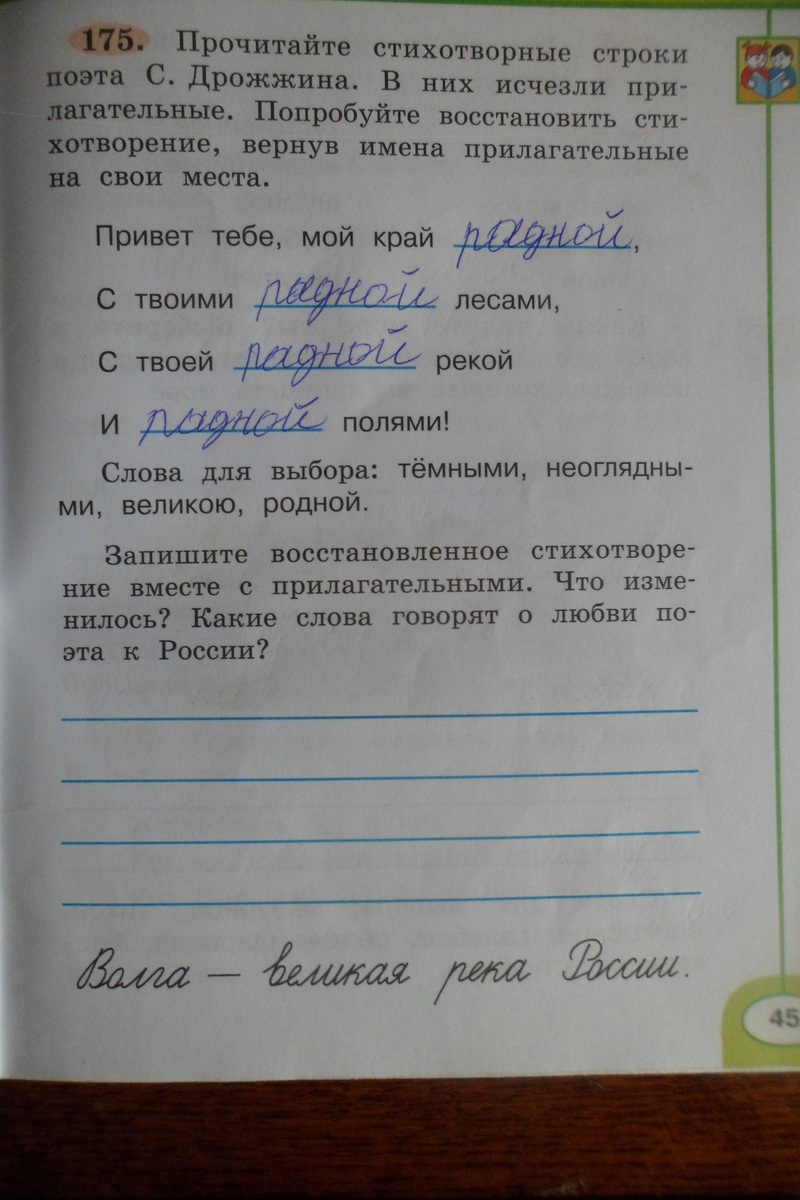 175. Прочитайте стихотворные строки
поэта С. Дрожжина. В них исчезли при-
лагательные. Попробуйте восстановить сти-
хотворение, вернув имена прилагательные
на свои места.
Привет тебе, мой край радной,
С твоими радной лесами,
С твоей радной рекой
И радной полями!
Слова для выбора: тёмными, неоглядны-
ми, великою, родной.
Запишите восстановленное стихотворе-
ние вместе с прилагательными. Что изме-
нилось? Какие слова говорят о любви по-
эта к России?
Волга — великая река России.
45